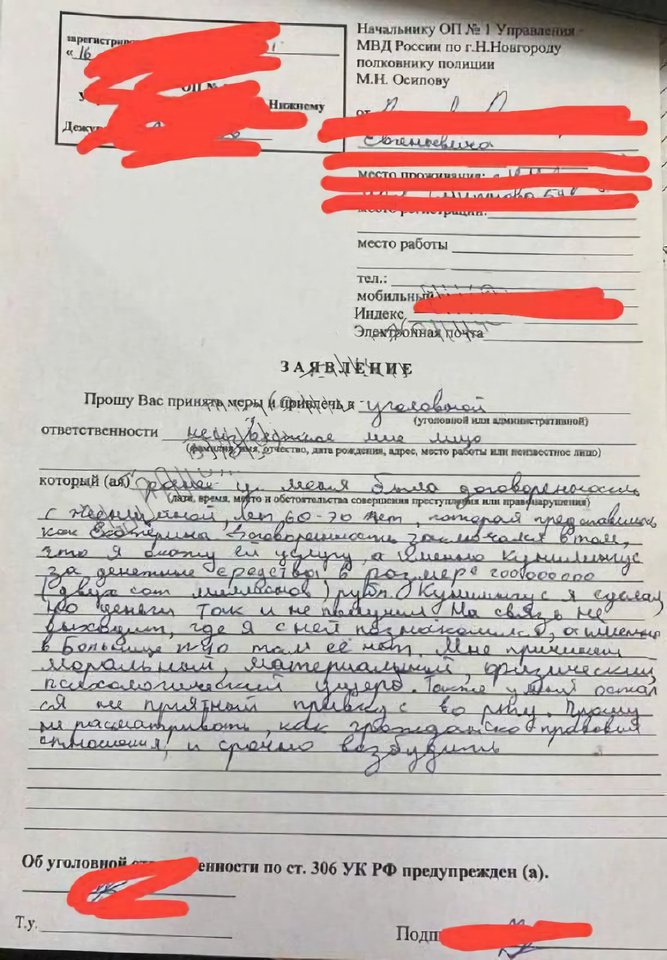 Начальнику ОП № 1 Управления
МВД России по г.Н.Новгороду
полковнику полиции
М.Н. Осипову
зарегистриро
« 16
ОП №
Нижнему
Дежу
от
Евгеньевича
место проживания:
место регистрации:
место работы
тел.:
мобильный
Индекс
Электронная почта
ЗАЯВЛЕНИЕ
Прошу Вас принять меры и привлечь к уголовной
(уголовной или административной)
ответственности неизвестное мне лицо
(фамилия, имя, отчество, дата рождения, адрес, место работы или неизвестное лицо)
который (ая) ранее у меня была договоренность
(дата, время, место и обстоятельства совершения преступления или правонарушения)
с женщиной, лет 60-70 лет, которая представилась
как Екатерина Договоренность заключался в том,
что я окажу ей услугу, а именно кунилингус
за денежные средства в размере 200000000
(двух сот миллионов) руб. Кунилингус я сделал,
но деньги так и не получил На связь не
выходит, где я с ней познакомился, а именно
в Больнице то там её нет. Мне причинен
моральный, материальный, физический,
психологический ущерб. Также у меня остал
ся не приятный привкус во рту. Прошу
не рассматривать, как гражданско правовия
отношения, и срочно возбудить
Об уголовной ответственности по ст. 306 УК РФ предупрежден (а).
Т.у.
Подп